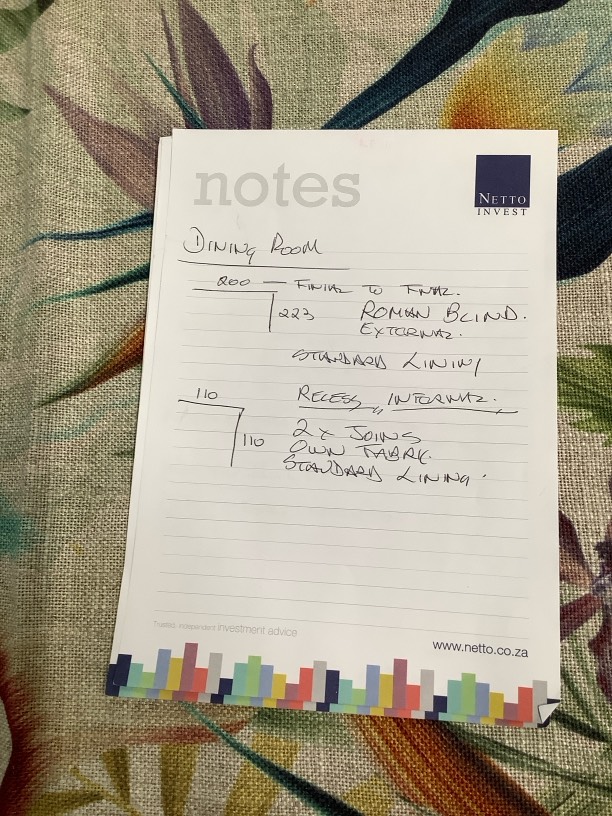 notes
NETTO
INVEST
DINING ROOM
200 — FINIAL TO FINIAL.
223 ROMAN BLIND.
EXTERNAL.
STANDARD LINING
110 RECESS, INTERNAL.
110 2x JOINS
OWN FABRIC.
STANDARD LINING.
Trusted, independent investment advice
www.netto.co.za